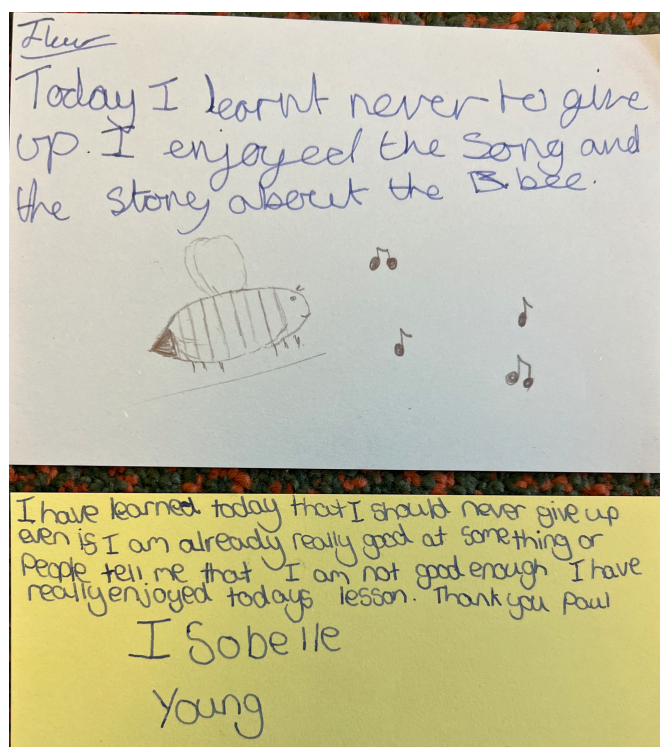 Fleur
Today I learnt never to give
up. I enjoyed the song and
the story about the B bee.
I have learned today that I should never give up
even is I am already really good at something or
People tell me that I am not good enough I have
really enjoyed todays lesson. Thank you Paul
I Sobelle
Young